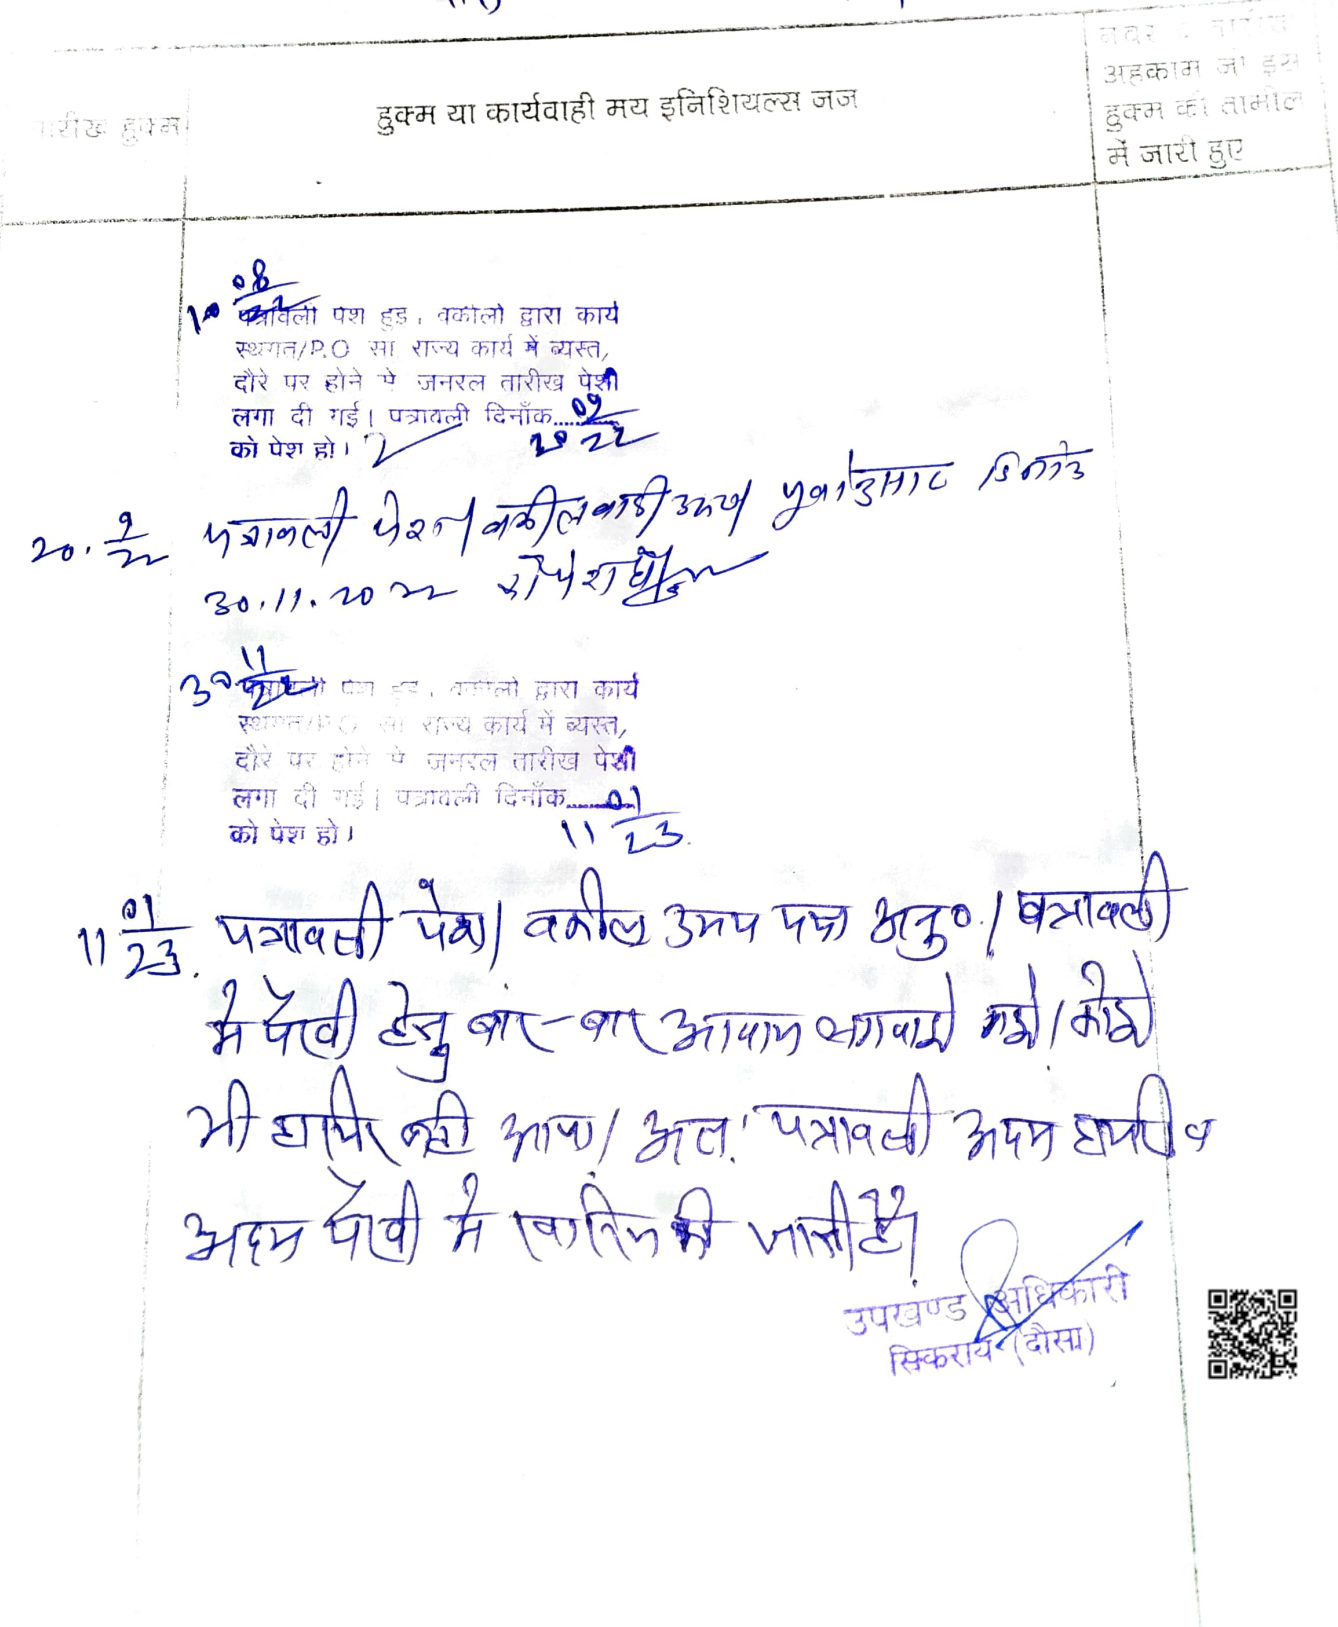 तारीख हुक्म
हुक्म या कार्यवाही मय इनिशियल्स जज
नंबर व तारीख
अहकाम जो इस
हुक्म की तामील
में जारी हुए
10 08/22
पत्रावली पेश हुई, वकीलो द्वारा कार्य
स्थगत/P.O सा राज्य कार्य में व्यस्त,
दौरे पर होने से जनरल तारीख पेशी
लगा दी गई। पत्रावली दिनाँक 20 09/22
को पेश हो।
20. 9/22 पत्रावली पेश। वकील वादी उप0।
30.11.2022 को पेश हो।
30 11/22
पत्रावली पेश हुई, वकीलो द्वारा कार्य
स्थगत/P.O सा राज्य कार्य में व्यस्त,
दौरे पर होने से जनरल तारीख पेशी
लगा दी गई। पत्रावली दिनाँक 11 01/23.
को पेश हो।
11 01/23. पत्रावली पेश। वकील उभय पक्ष अनु०। पत्रावली
में पैरवी हेतु बार-बार आवाज लगवाई गई। कोई
भी हाजिर नही आया। अतः पत्रावली अदम हाजरी व
अदम पैरवी में खारिज की जाती है।
उपखण्ड अधिकारी
सिकराय (दौसा)